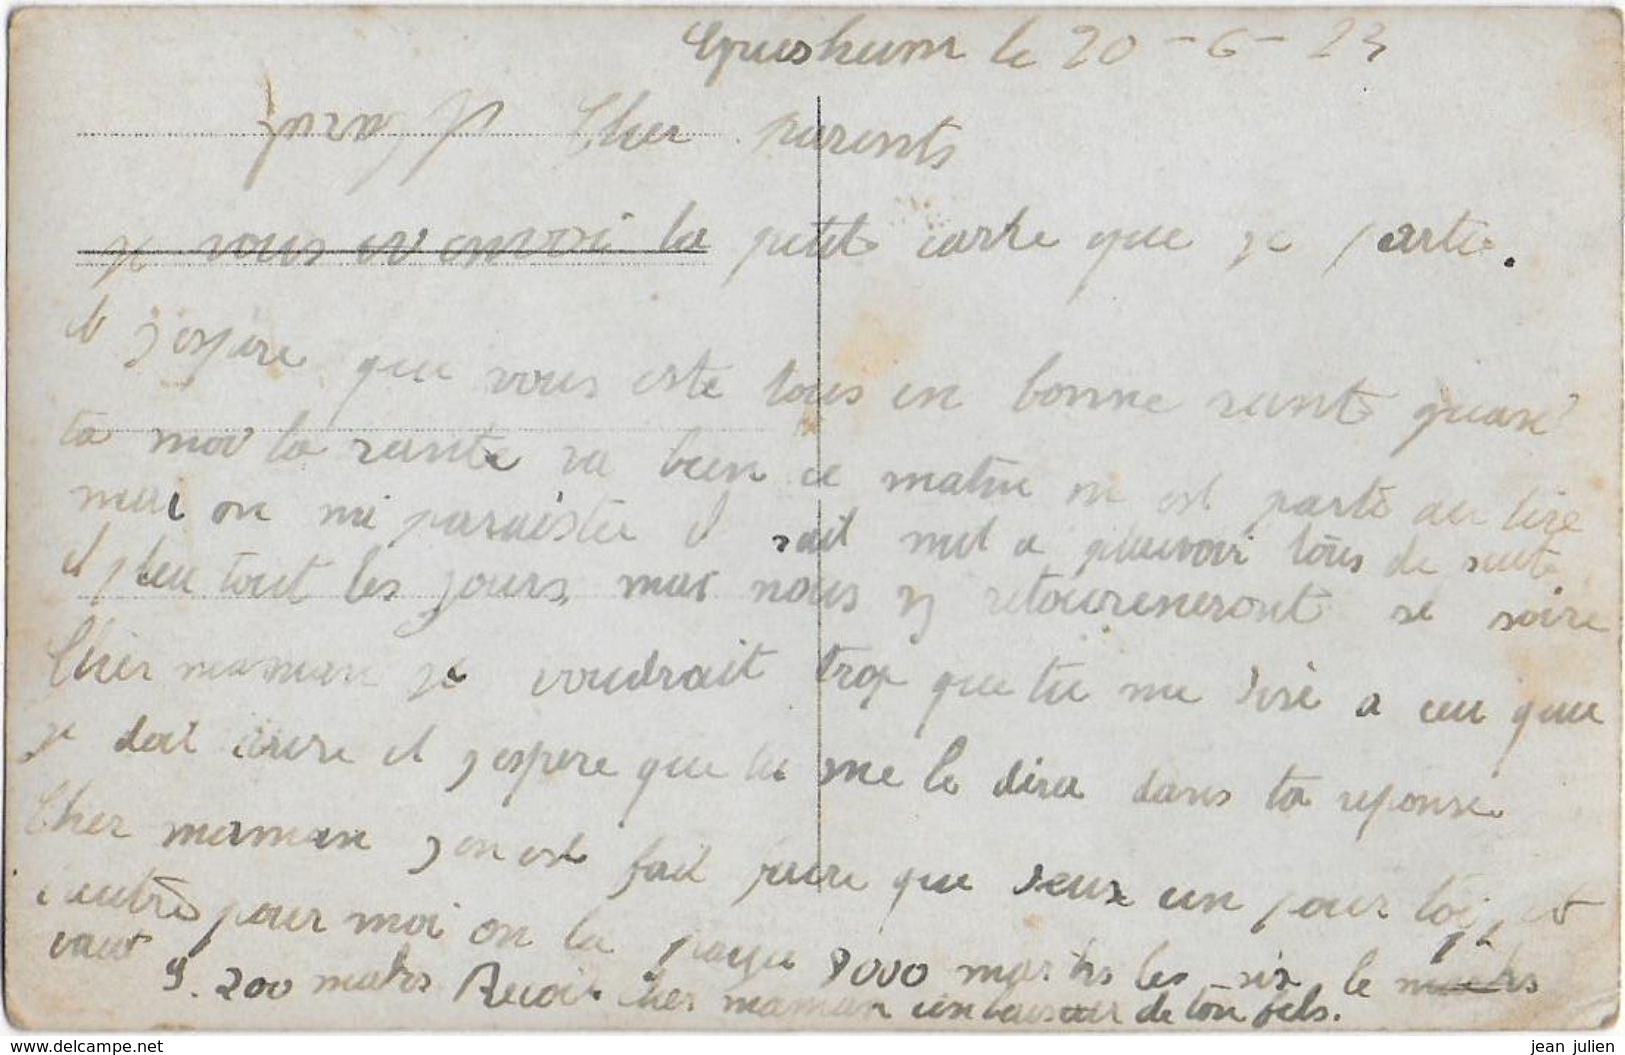 le 20-6-23
Cher parents
je vous en envoi la petite carte que je
et j'espere que vous este tous en bonne santé quan
ta moi la santé va bien ce matin on est parti au tire
mai on il a pluvoir tous de suite
il pleu tout les jours, mai nous y retoureneront se soire
Cher maman je voudrait trop que tu me dise a ceu que
je doit et j'espere que tu me le dira dans ta reponse
Cher maman j'en est fait faire que deux un pour toi, et
l'autre pour moi on la payu 9000 marks les six le
vaut 9.200 marks Recoit cher maman un baiser de ton fils.
www.delcampe.net
jean julien